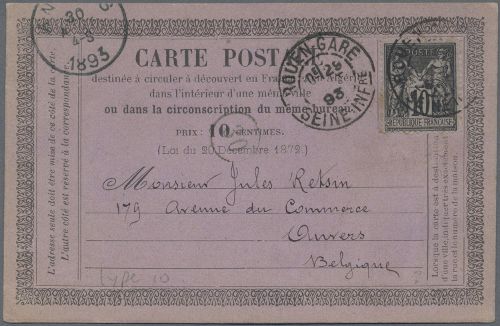 30
4-S
1893
CARTE POSTALE
destinée à circuler à découvert en France et en Algérie
dans l'intérieur d'une même ville
ou dans la circonscription du même bureau.
PRIX: 10 CENTIMES.
(Loi du 20 Décembre 1872.)
ROUEN-GARE
93
SEINE-INFRE
POSTE
10
RÉPUBLIQUE FRANÇAISE
Monsieur Jules Retsin
179 Avenue du Commerce
Anvers
Belgique
L'adresse seule doit être mise de ce côté de la carte.
L'autre côté est réservé à la correspondance.
Lorsque la carte est à destination
d'une ville, indiquer très exactement
la rue et le numéro de la maison.
type 10